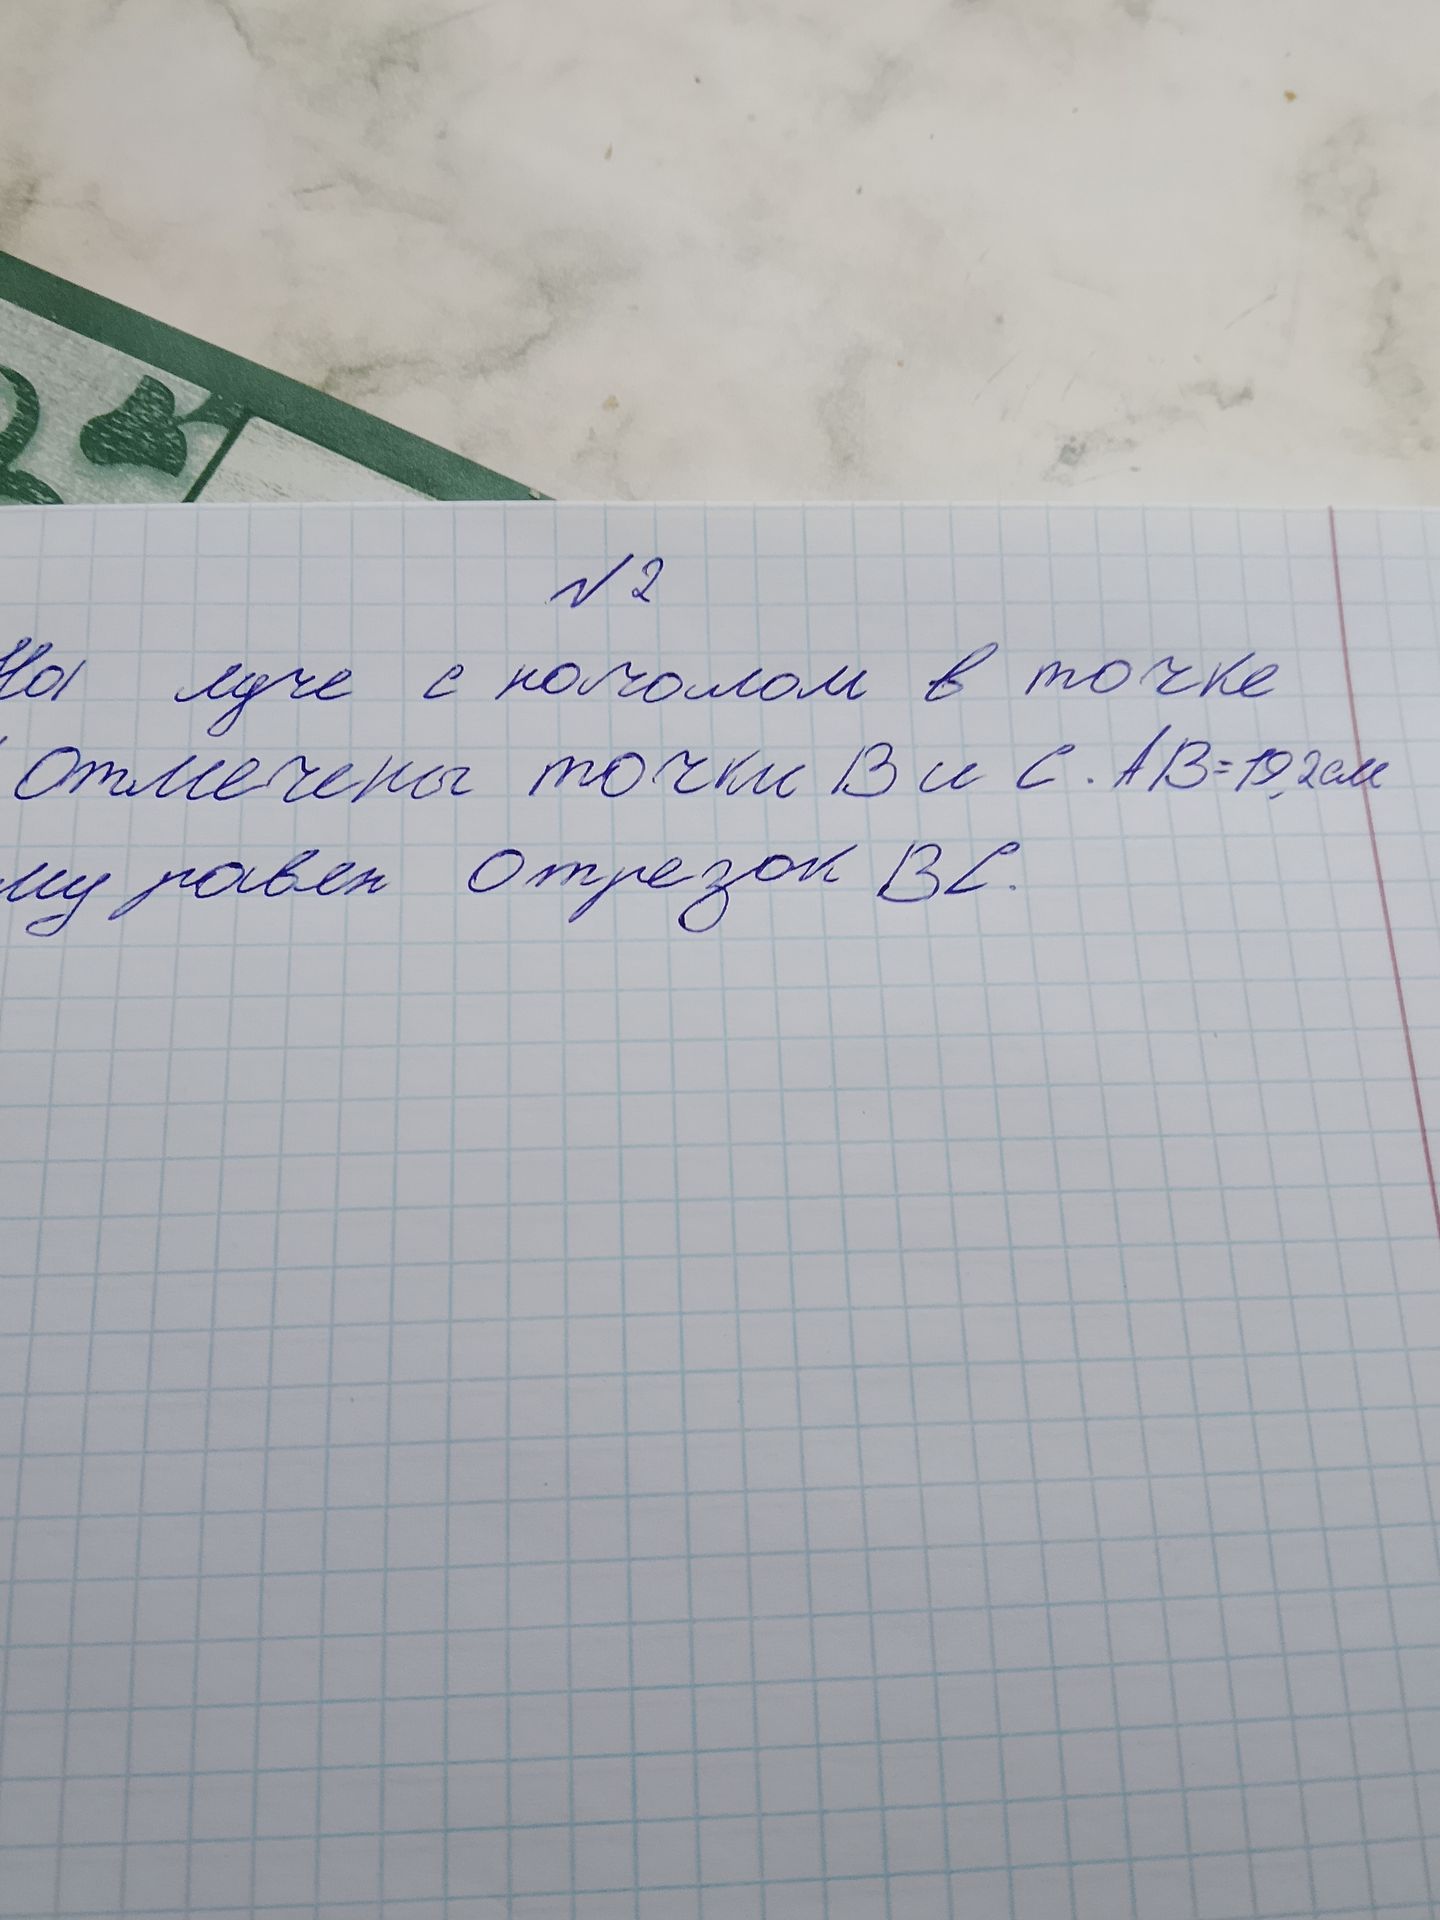 №2
На луче с началом в точке
отмечены точки В и С. АВ=19,2см
му равен отрезок ВС.